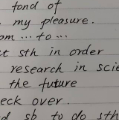 fond of
my pleasure.
om ... to ...
t sth in order
research in scie
the future
eck over.
d sb to do sth